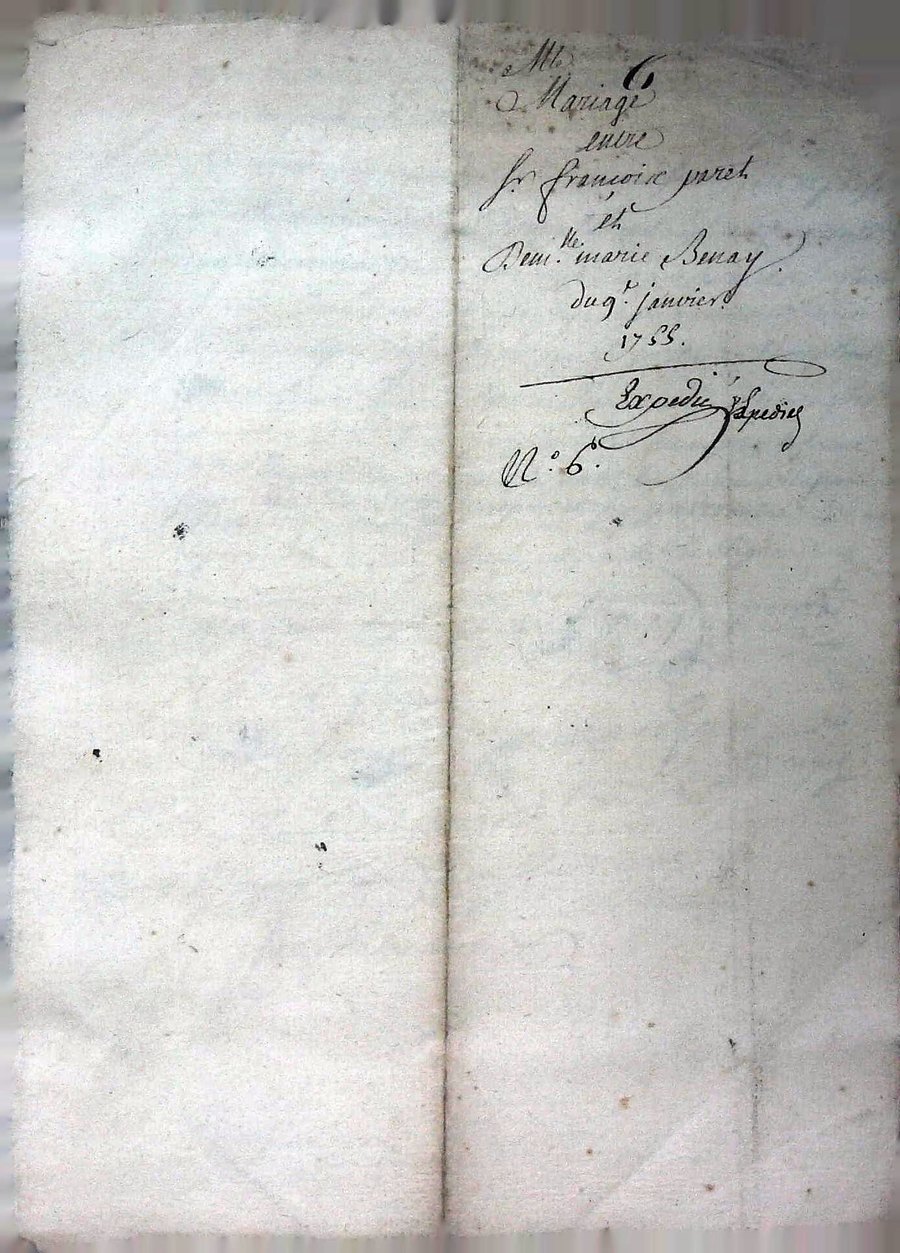 6
Mariage
entre
Sr. françois paret
et
Demlle. marie Benay.
du 9e. janvier
1755.
Expedié Expediée
No. 6.